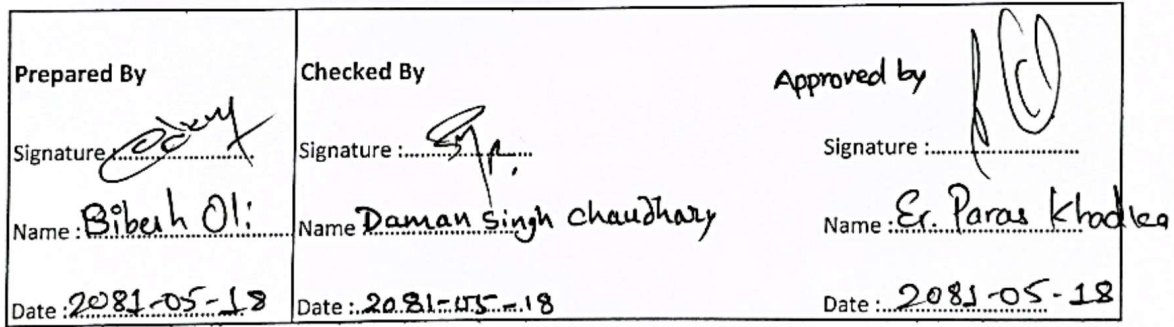 Prepared By
Signature :
Name : Bibesh Oli
Date : 2081-05-18
Checked By
Signature :
Name Daman Singh chaudhary
Date : 2081-05-18
Approved by
Signature :
Name : Er. Paras Khadka
Date : 2081-05-18